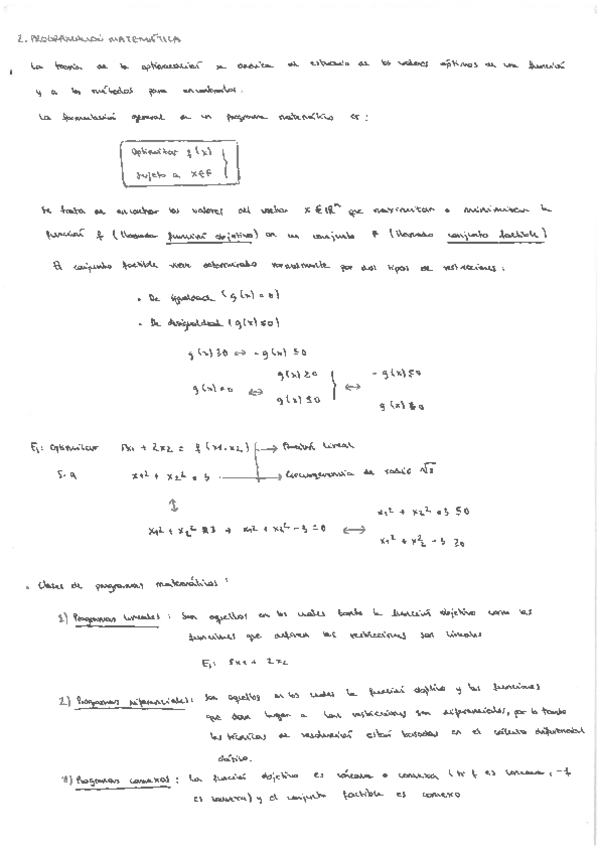 2. PROGRAMACIÓN MATEMÁTICA
La teoría de la optimización se dedica al estudio de los valores óptimos de una función
y a los métodos para encontrarlos.
La formulación general de un programa matemático es:
Optimizar f(x)
sujeto a x∈F
Se trata de encontrar los valores del vector x∈ℝⁿ que maximizan o minimizan la
función f (llamada función objetivo) en un conjunto F (llamado conjunto factible)
El conjunto factible viene determinado normalmente por dos tipos de restricciones:
• De igualdad (g(x)=0)
• De desigualdad (g(x)≤0)
g(x)≥0 ↔ -g(x)≤0
g(x)≥0 -g(x)≤0
g(x)=0 ↔ } ↔
g(x)≤0 g(x)≤0
Ej: Optimizar x1 + 2x2 = f(x1,x2) → Función lineal
s.a x1² + x2² = 3 → Circunferencia de radio √3
↕
x1² + x2² = 3 → x1² + x2² - 3 = 0 ↔
x1² + x2² 3 ≤0
x1² + x2² - 3 ≥0
• Clases de programas matemáticos:
1) Programas lineales: Son aquellos en los cuales tanto la función objetivo como las
funciones que definen las restricciones son lineales
Ej: 5x1 + 2x2
2) Programas diferenciales: Son aquellos en los cuales la función objetivo y las funciones
que dan lugar a las restricciones son diferenciales, por lo tanto
las técnicas de resolución están basadas en el cálculo diferencial
clásico.
3) Programas convexos: La función objetivo es cóncava o convexa (si f es convexa, -f
es cóncava) y el conjunto factible es convexo